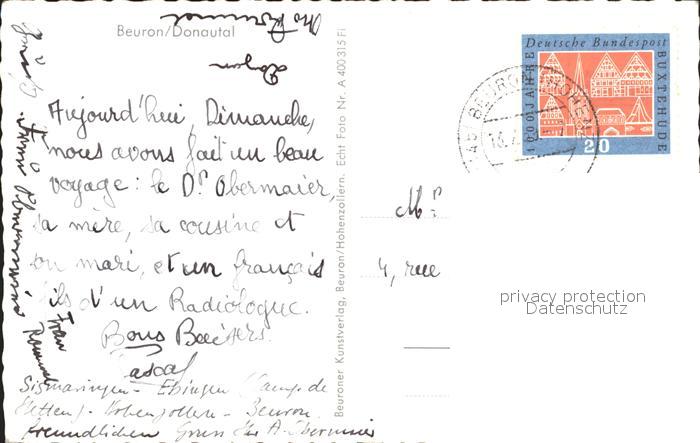 Beuron/Donautal
Aujourd'hui, Dimanche,
nous avons fait un beau
voyage : le Dr Obermaier,
sa mère, sa cousine et
son mari, et un français
fils d'un Radiologue.
Bons Baisers.
Pascal
Sigmaringen - Ebingen (Camp de
- Hohenzollern - Beuron.
freundlichen Gruss Ihr A. Obermaier
Beuroner Kunstverlag, Beuron/Hohenzollern. Echt Foto Nr. A 400 315 Fi
Deutsche Bundespost
1000 JAHRE
BUXTEHUDE
20
BEURON
Mr
4, rue
privacy protection
Datenschutz